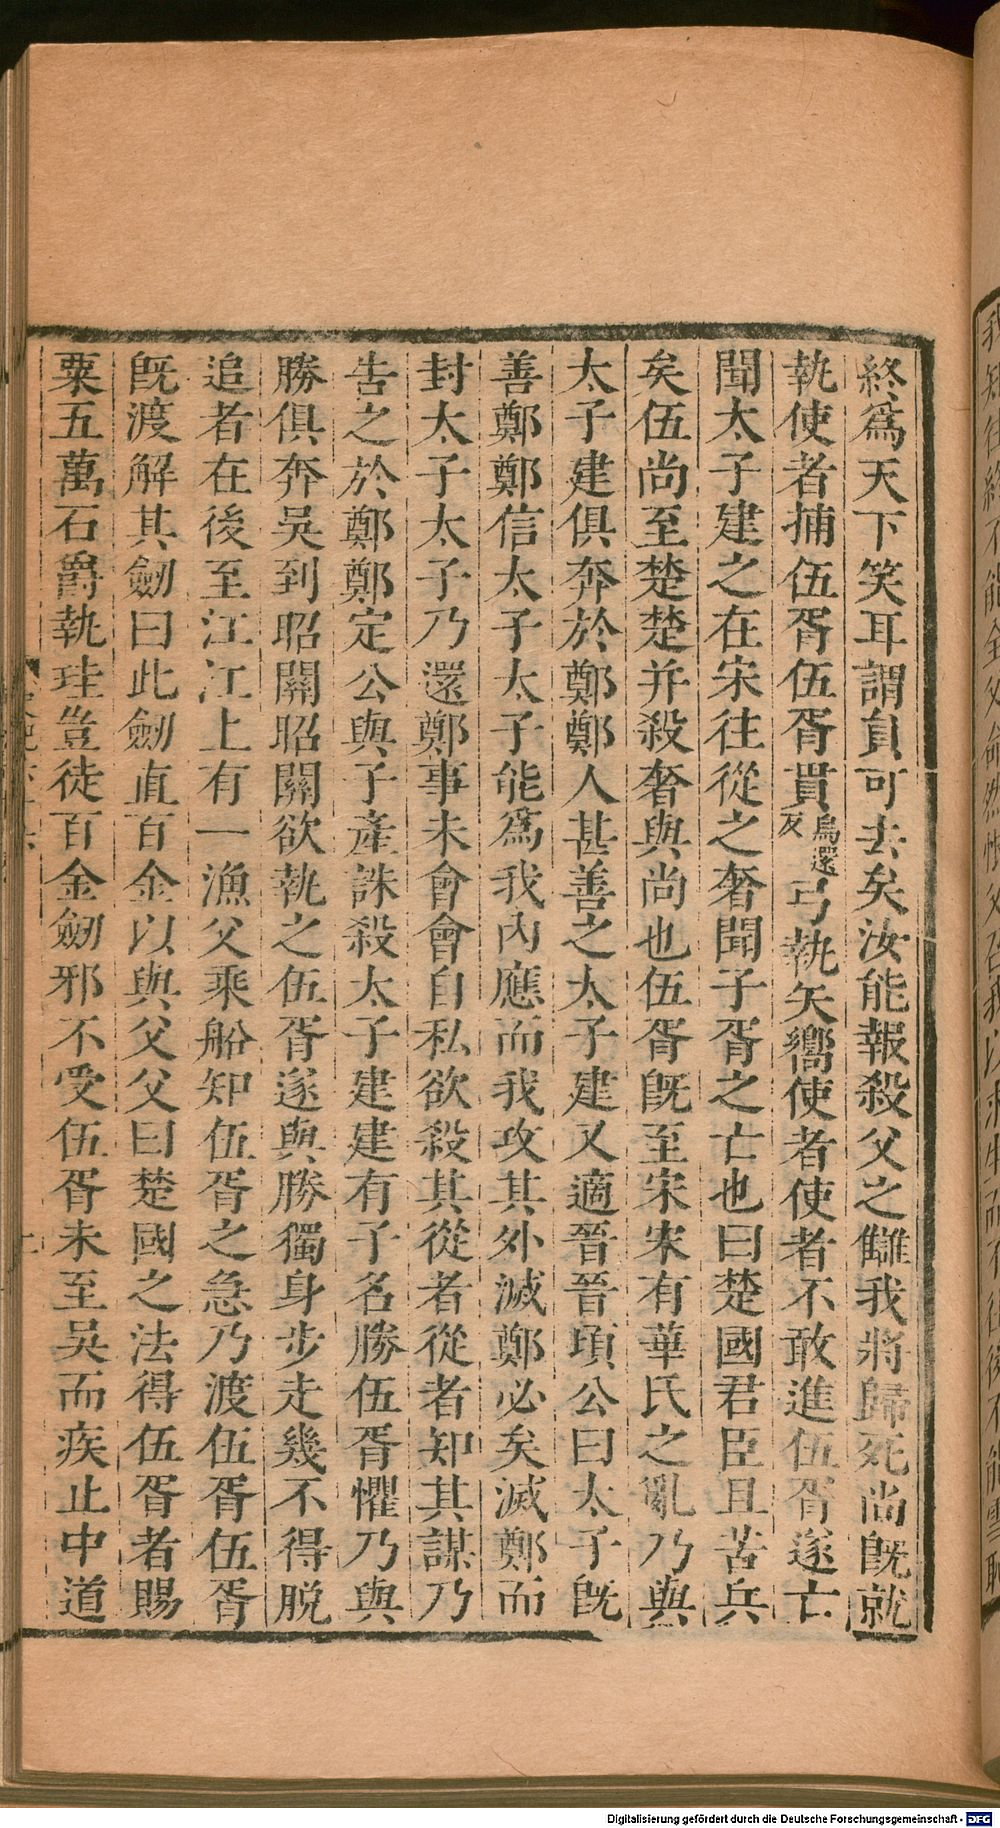 終爲天下笑耳謂員可去矣汝能報殺父之讎我將歸死尚旣就
執使者捕伍胥伍胥貫烏還反弓執矢嚮使者使者不敢進伍胥遂亡
聞太子建之在宋往從之奢聞子胥之亡也曰楚國君臣且苦兵
矣伍尚至楚楚并殺奢與尚也伍胥旣至宋宋有華氏之亂乃與
太子建俱奔於鄭鄭人甚善之太子建又適晉晉頃公曰太子旣
善鄭鄭信太子太子能爲我內應而我攻其外滅鄭必矣滅鄭而
封太子太子乃還鄭事未會會自私欲殺其從者從者知其謀乃
告之於鄭鄭定公與子產誅殺太子建建有子名勝伍胥懼乃與
勝俱奔吳到昭關昭關欲執之伍胥遂與勝獨身步走幾不得脫
追者在後至江江上有一漁父乘船知伍胥之急乃渡伍胥伍胥
旣渡解其劒曰此劒直百金以與父父曰楚國之法得伍胥者賜
粟五萬石爵執珪豈徒百金劒邪不受伍胥未至吳而疾止中道
Digitalisierung gefördert durch die Deutsche Forschungsgemeinschaft - DFG